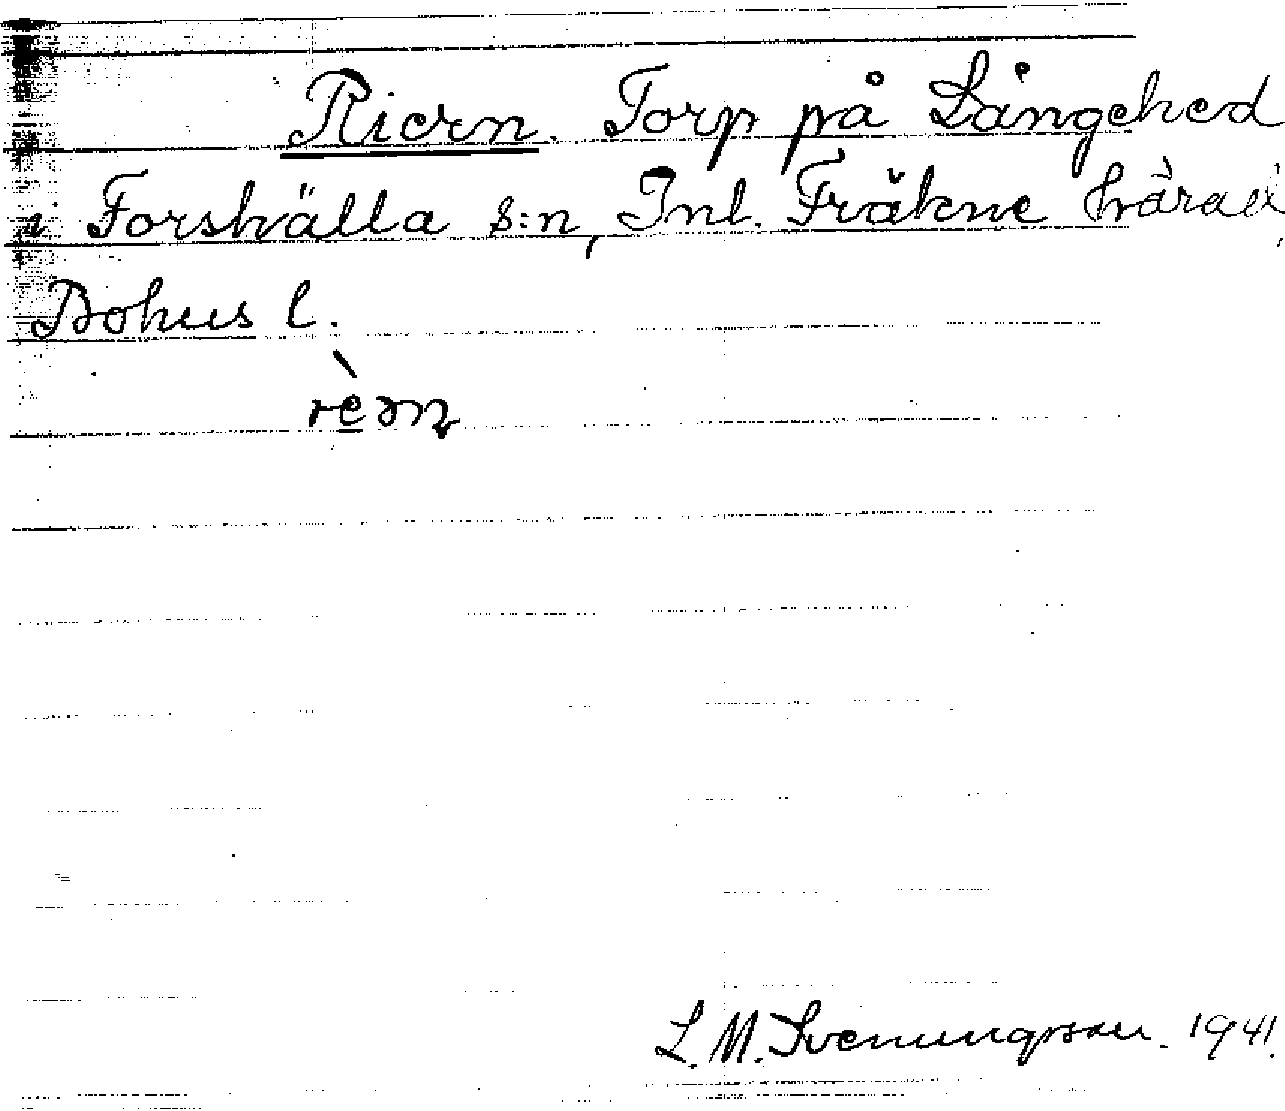 Riern. Torp på Långehed
i Forshälla s:n, Inl. Fräkne härad,
Bohus l.
L. M. Svenungsson. 1941.